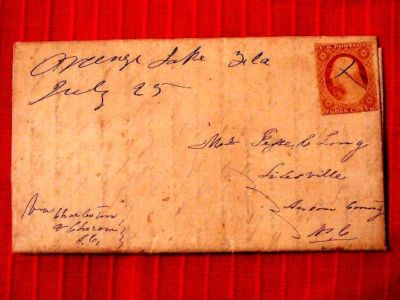 Orange Lake Fla
July 25
U.S. POSTAGE
THREE CENTS
Long
Lilesville
Anson County
N. C
Via Charleston
& Cheraw
S. C.